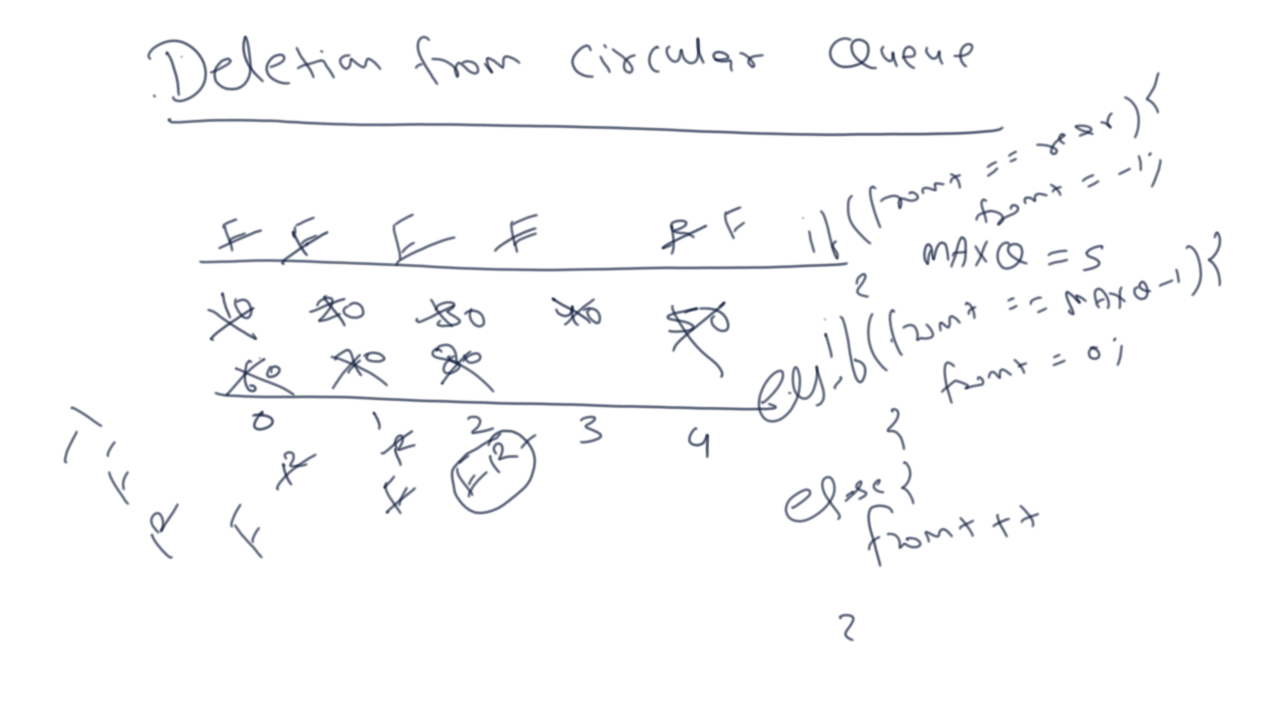 Deletion from circular Queue
F F F F R F
10 20 30 40 50
60 70 80
0 1 2 3 4
R R F R
F F
R
if (front == rear) {
front = -1;
MAXQ = 5
}
else if (front == MAXQ-1) {
front = 0;
}
else {
front ++
}